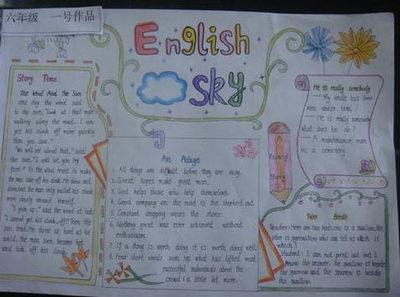 六年级 一号作品
English
Sky
Story Time
The Wind And The Sun
one day the wind said
to the sun, "Look at that man
walking along the road. I can
get his cloak off more quickly
than you can."
"We will see about that," said
the sun. "I will let you try
first." So the wind tried to make
the man take off his cloak. He blew and
blew, the man only pulled his cloak
more closely around himself.
"I give up," said the wind at last
"I cannot get his cloak off." Then the
sun tried. He shone as hard as he
could. the man soon became hot
and took off his cloak.
An Adage
1. All things are difficult before they are easy.
2. Great hopes make great man.
3. God helps those who help themselves.
4. Good company on the road is the shortest cut.
5. Constant dropping wears the stone.
6. Nothing great was ever achieved without
enthusiasm.
7. If a thing is worth doing it is worth doing well.
8. Four short words sum up what has lifted most
successful individuals above the
crowd: a little bit more.
Funny
Story
He is really somebody
— My uncle has 1000
men under him.
— He is really somebody.
what does he do?
— A maintenance man
in a cemetery.
Two Birds
Teacher: Here are two birds, one is a swallow, the
other is sparrow. Now who can tell us which is
which?
Student: I can not point out but I
know the answer. the swallow is beside
the sparrow and the sparrow is beside
the swallow.